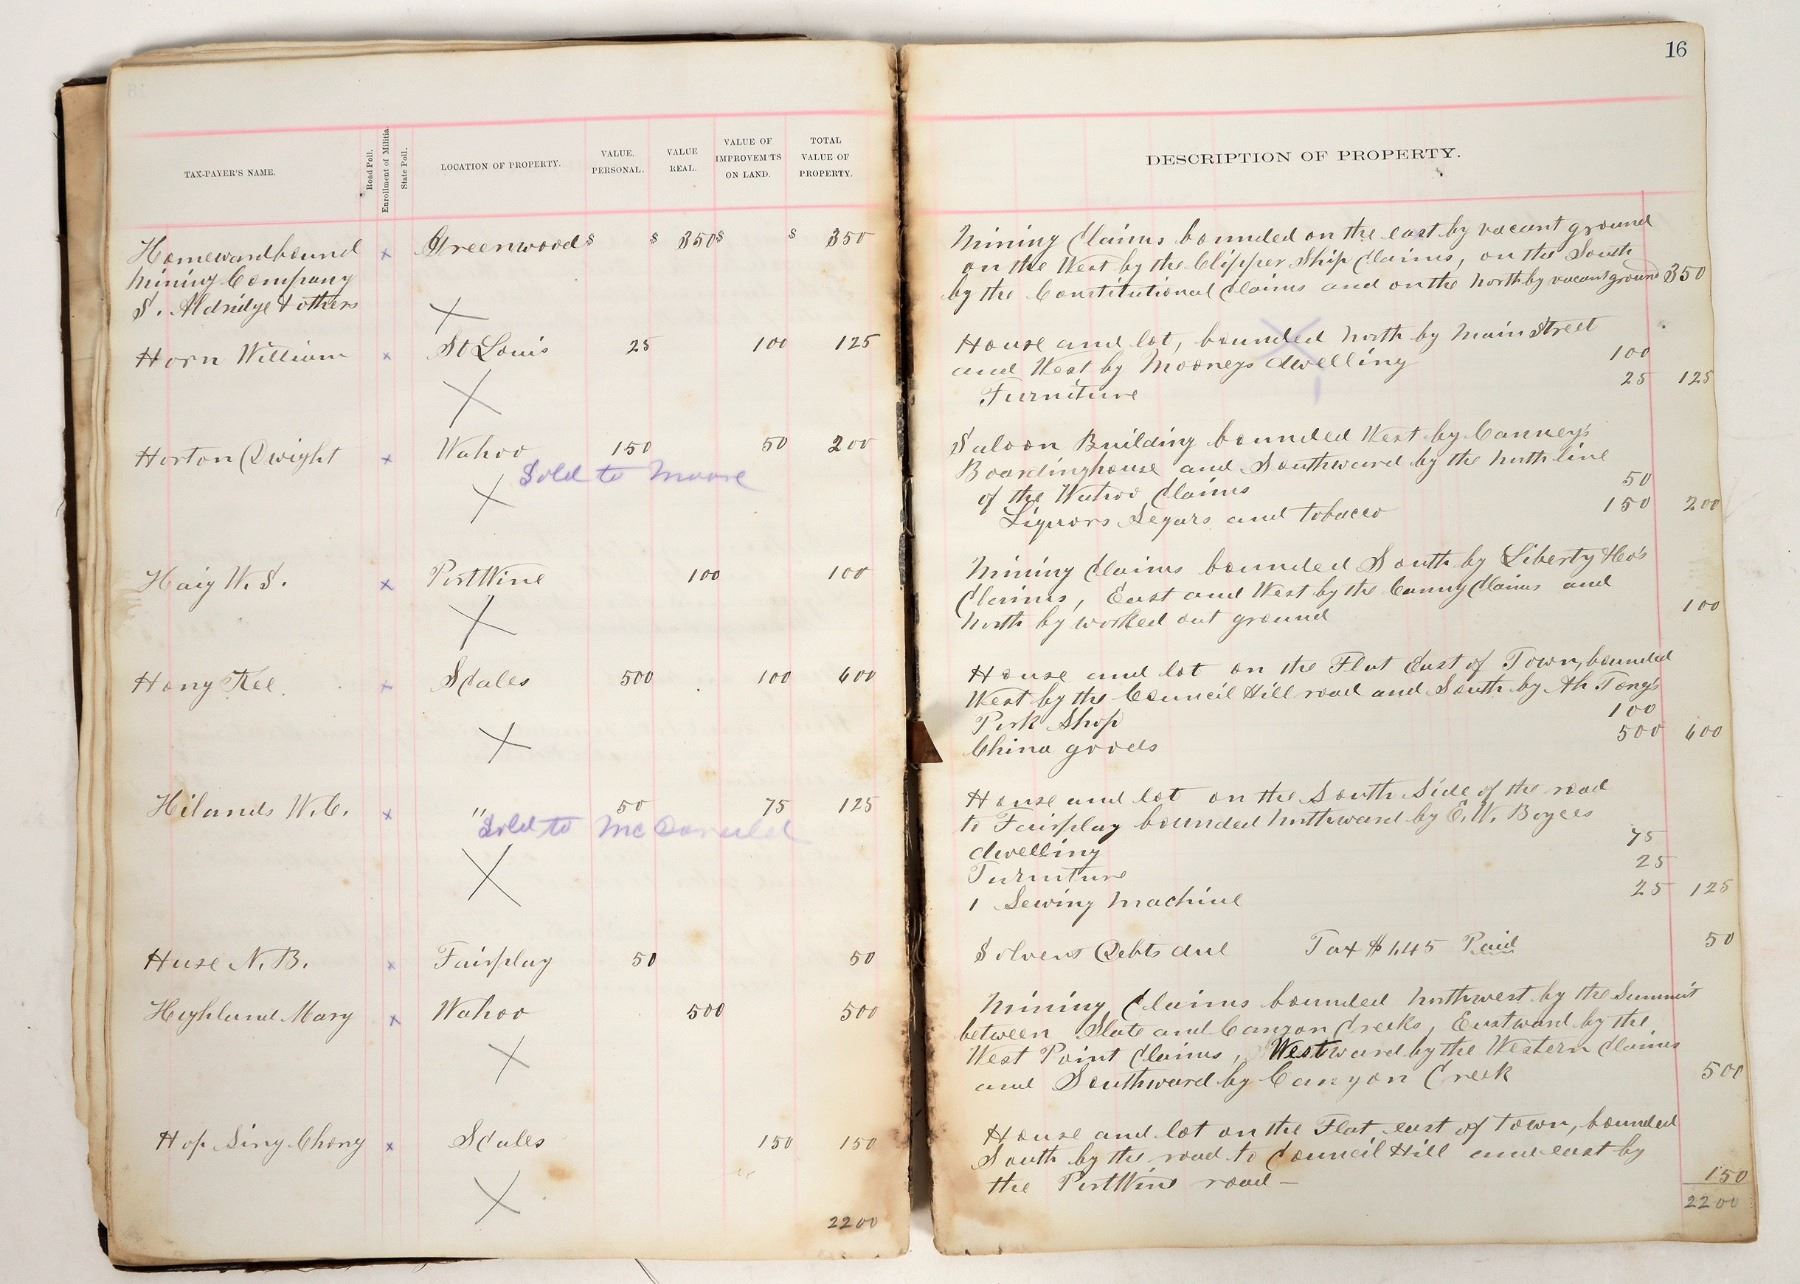 16
TAX-PAYER'S NAME. Road Poll. Enrollment of Militia. State Poll. LOCATION OF PROPERTY. VALUE. PERSONAL. VALUE REAL. VALUE OF IMPROVEM'TS ON LAND. TOTAL VALUE OF PROPERTY.
Homewardbound x Greenwood $ $ 350 $ $ 350
Mining Company
S. Aldridge & others
Horn William x St Louis 25 100 125
Horton Dwight x Wahoo 150 50 200
Sold to Moore
Haig W. S. x PortWine 100 100
Hong Kee x Scales 500 100 600
Hilands W. C. x " 50 75 125
Sold to McDonald
Huse N. B. x Fairplay 50 50
Highland Mary x Wahoo 500 500
Hop Sing Chong x Scales 150 150
2200
DESCRIPTION OF PROPERTY.
Mining Claims bounded on the east by vacant ground
on the West by the Clipper Ship Claims, on the South
by the Constitutional Claims and on the North by vacant ground 350
House and lot, bounded North by Main Street
and West by Mooneys dwelling 100
Furniture 25 125
Saloon Building bounded West by Canney's
Boardinghouse and Southward by the north line
of the Wahoo Claims 50
Liquors Segars and tobacco 150 200
Mining Claims bounded South by Liberty & Co's
Claims, East and West by the Canny Claims and
North by worked out ground 100
House and lot on the Flat East of Town, bounded
West by the Council Hill road and South by Ah Tong's
Pork Shop 100
China goods 500 600
House and lot on the South Side of the road
to Fairplay bounded Northward by E. W. Boyces
dwelling 75
Furniture 25
1 Sewing Machine 25 125
Solvent Debts due Tax $1.45 Paid 50
Mining Claims bounded Northwest by the Summit
between Slate and Canyon Creeks, Eastward by the
West Point Claims, Westward by the Western Claims
and Southward by Canyon Creek 500
House and lot on the Flat east of Town, bounded
South by the road to Council Hill and east by
the PortWine road— 150
2200